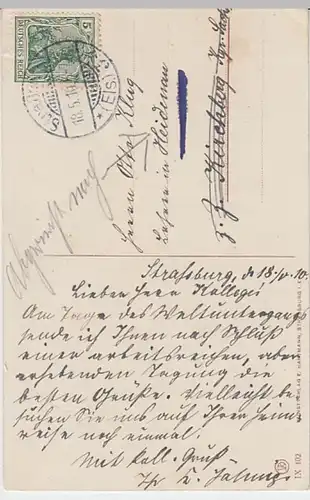 DEUTSCHES REICH
5
18.5.10
(ELS.)
Abgereist nach
Herrn Otto Klug
Lehrer in Heidenau
z. Z. Kirchberg
Straßburg, d. 18./V.10.
Lieber Herr Kollege!
Am Tage des Weltuntergangs
sende ich Ihnen nach Schluß
einer arbeitsreichen, aber
erhebenden Tagung die
besten Grüße. Vielleicht be-
suchen Sie uns auf Ihrer Heim-
reise noch einmal.
Mit koll. Gruß
Ihr
IX 102